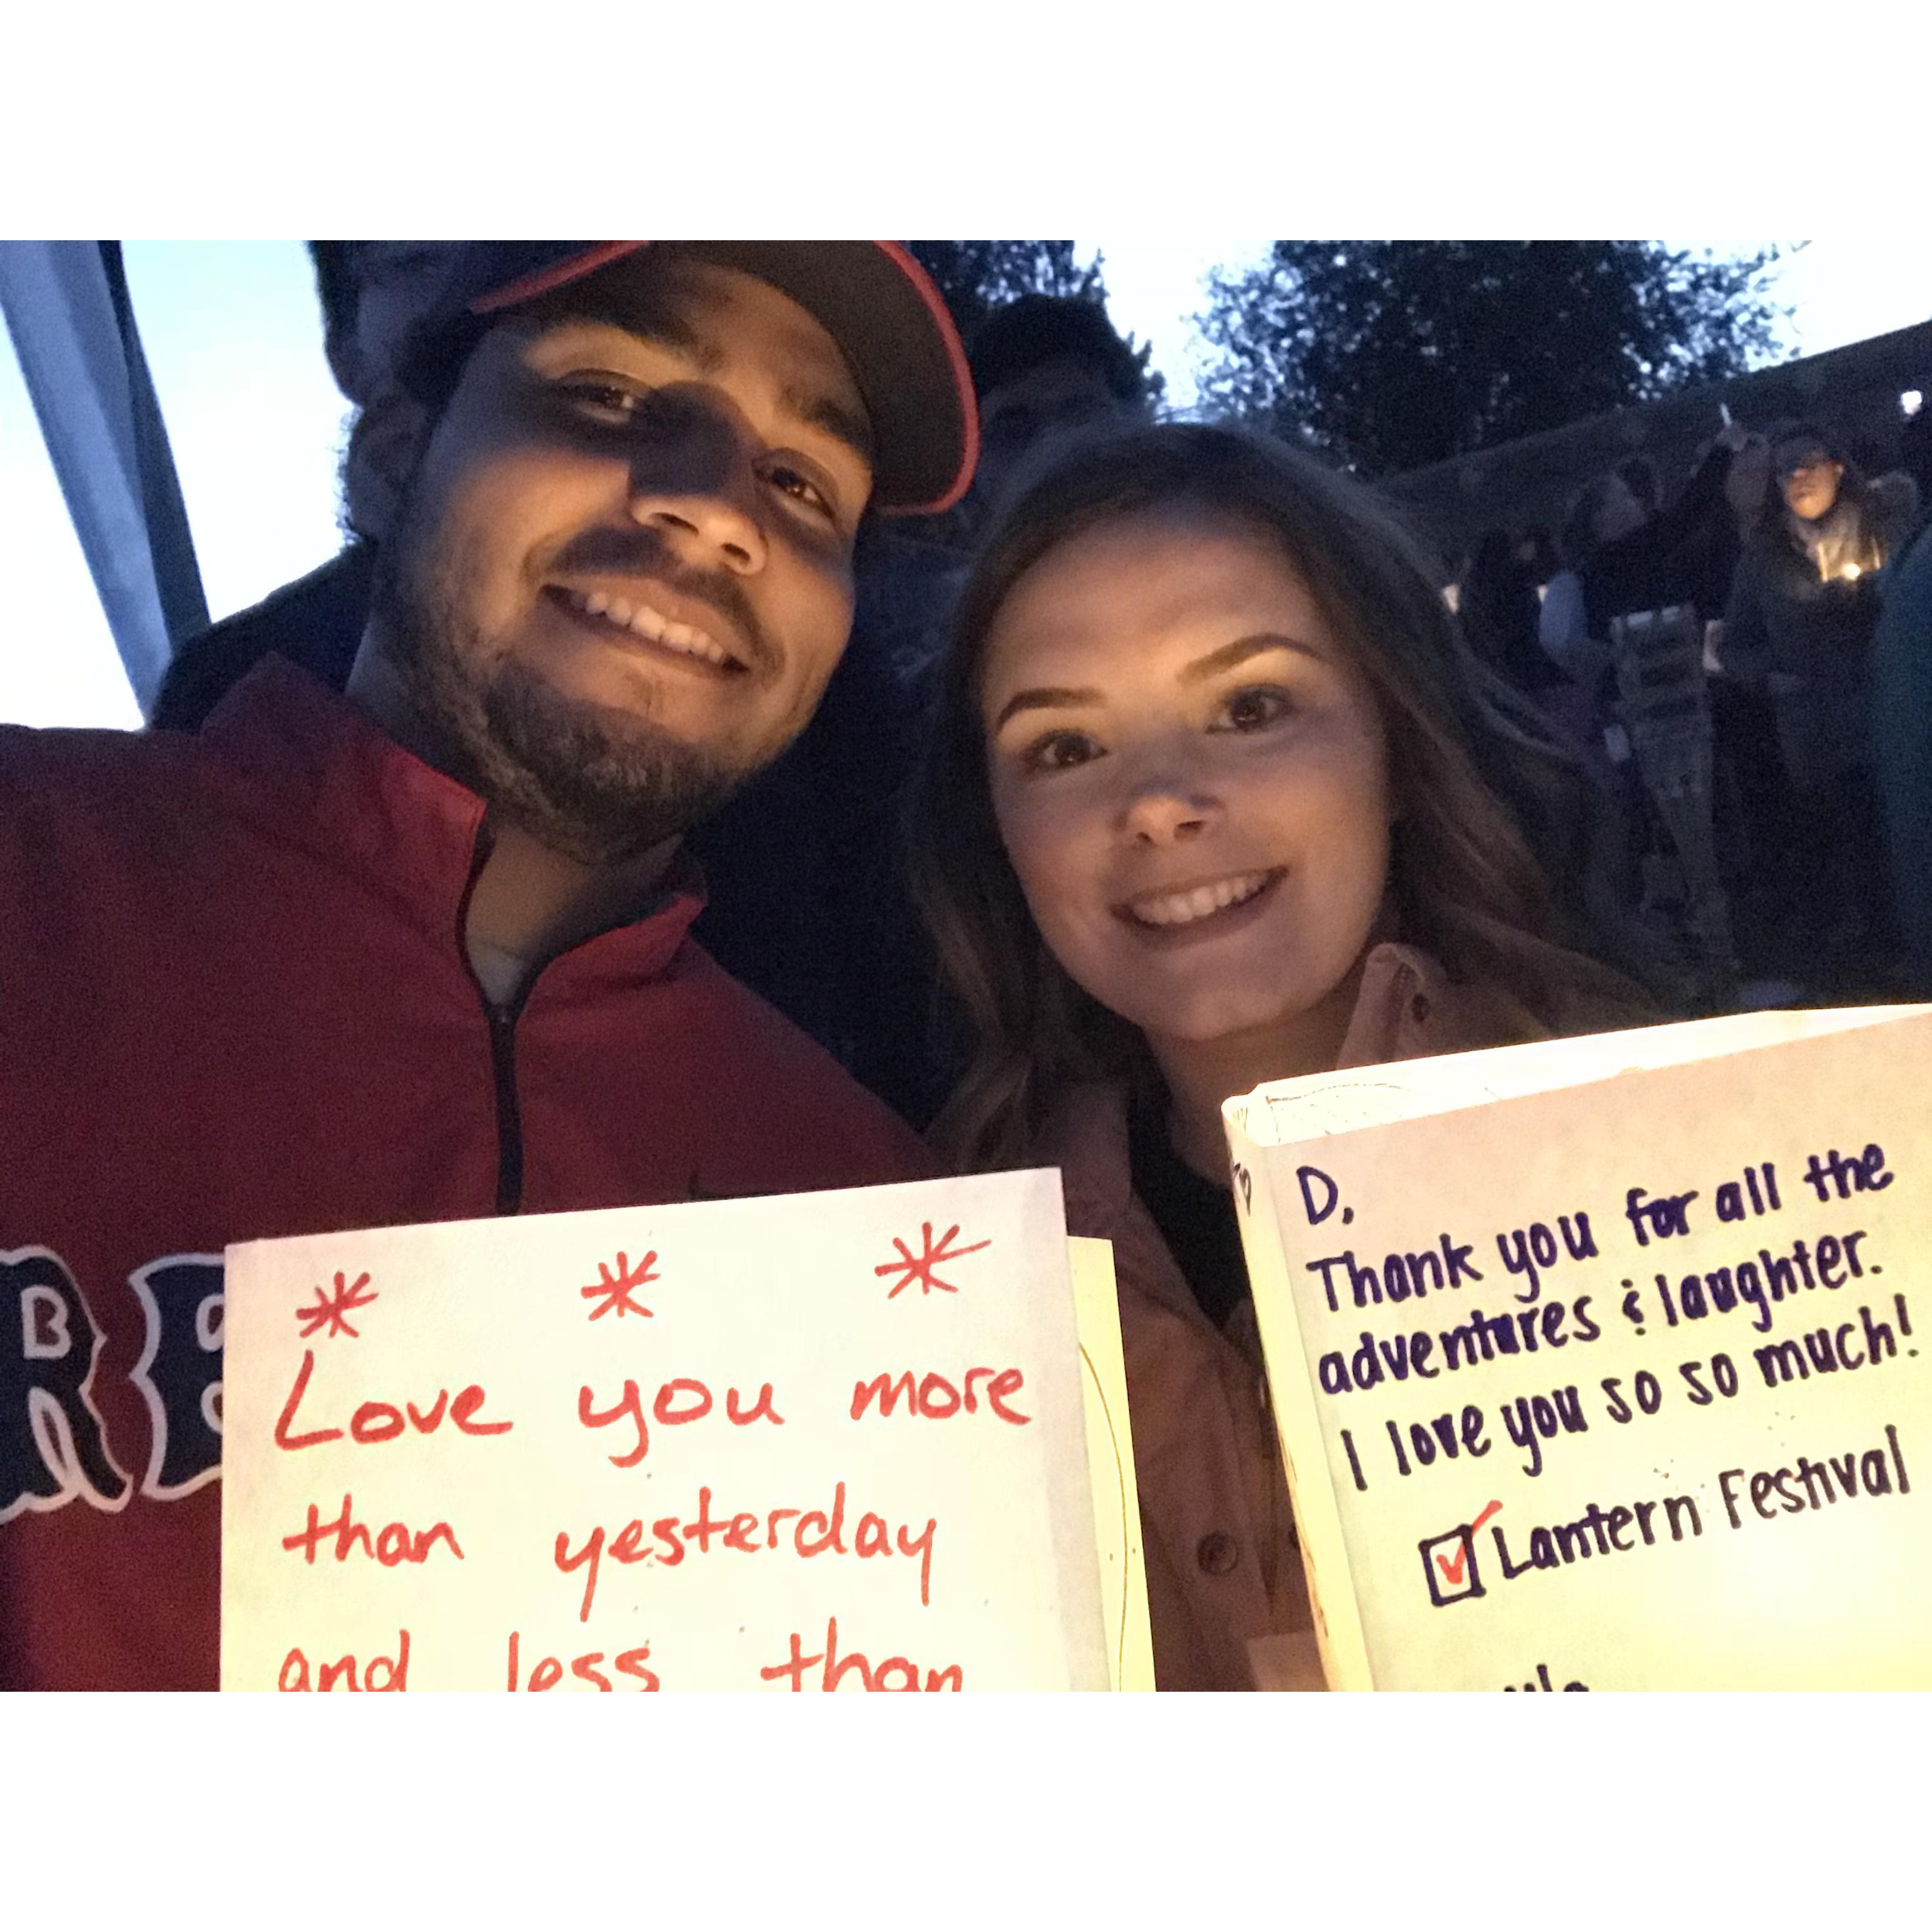 * * *
Love you more
than yesterday
and less than
D,
Thank you for all the
adventures & laughter.
I love you so so much!
Lantern Festival
RE
B